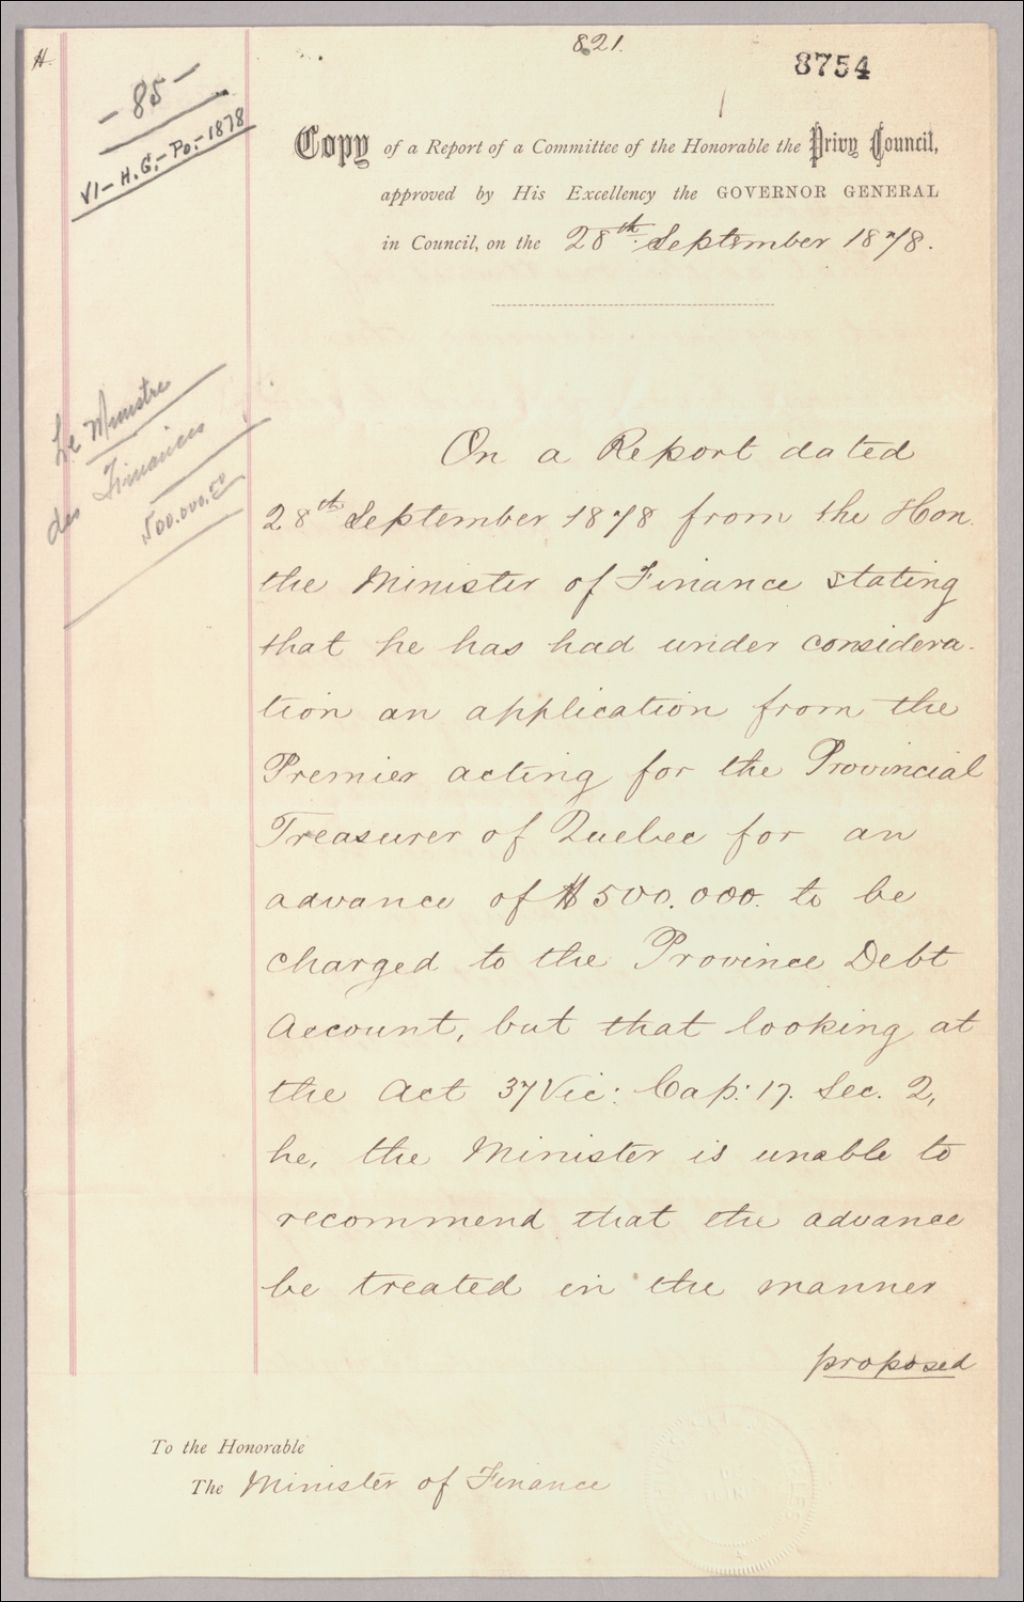 H.
821.
8754
- 85 -
VI - H.G. - Po. - 1878
Copy of a Report of a Committee of the Honorable the Privy Council,
approved by His Excellency the GOVERNOR GENERAL
in Council, on the 28th September 1878.
Le Ministre
des Finances
500.000.00
On a Report dated
28th September 1878 from the Hon.
the Minister of Finance stating
that he has had under considera-
tion an application from the
Premier acting for the Provincial
Treasurer of Quebec for an
advance of $500.000. to be
charged to the Province Debt
Account, but that looking at
the Act 37 Vic: Cap: 17. Sec. 2,
he, the Minister is unable to
recommend that the advance
be treated in the manner
proposed
To the Honorable
The Minister of Finance